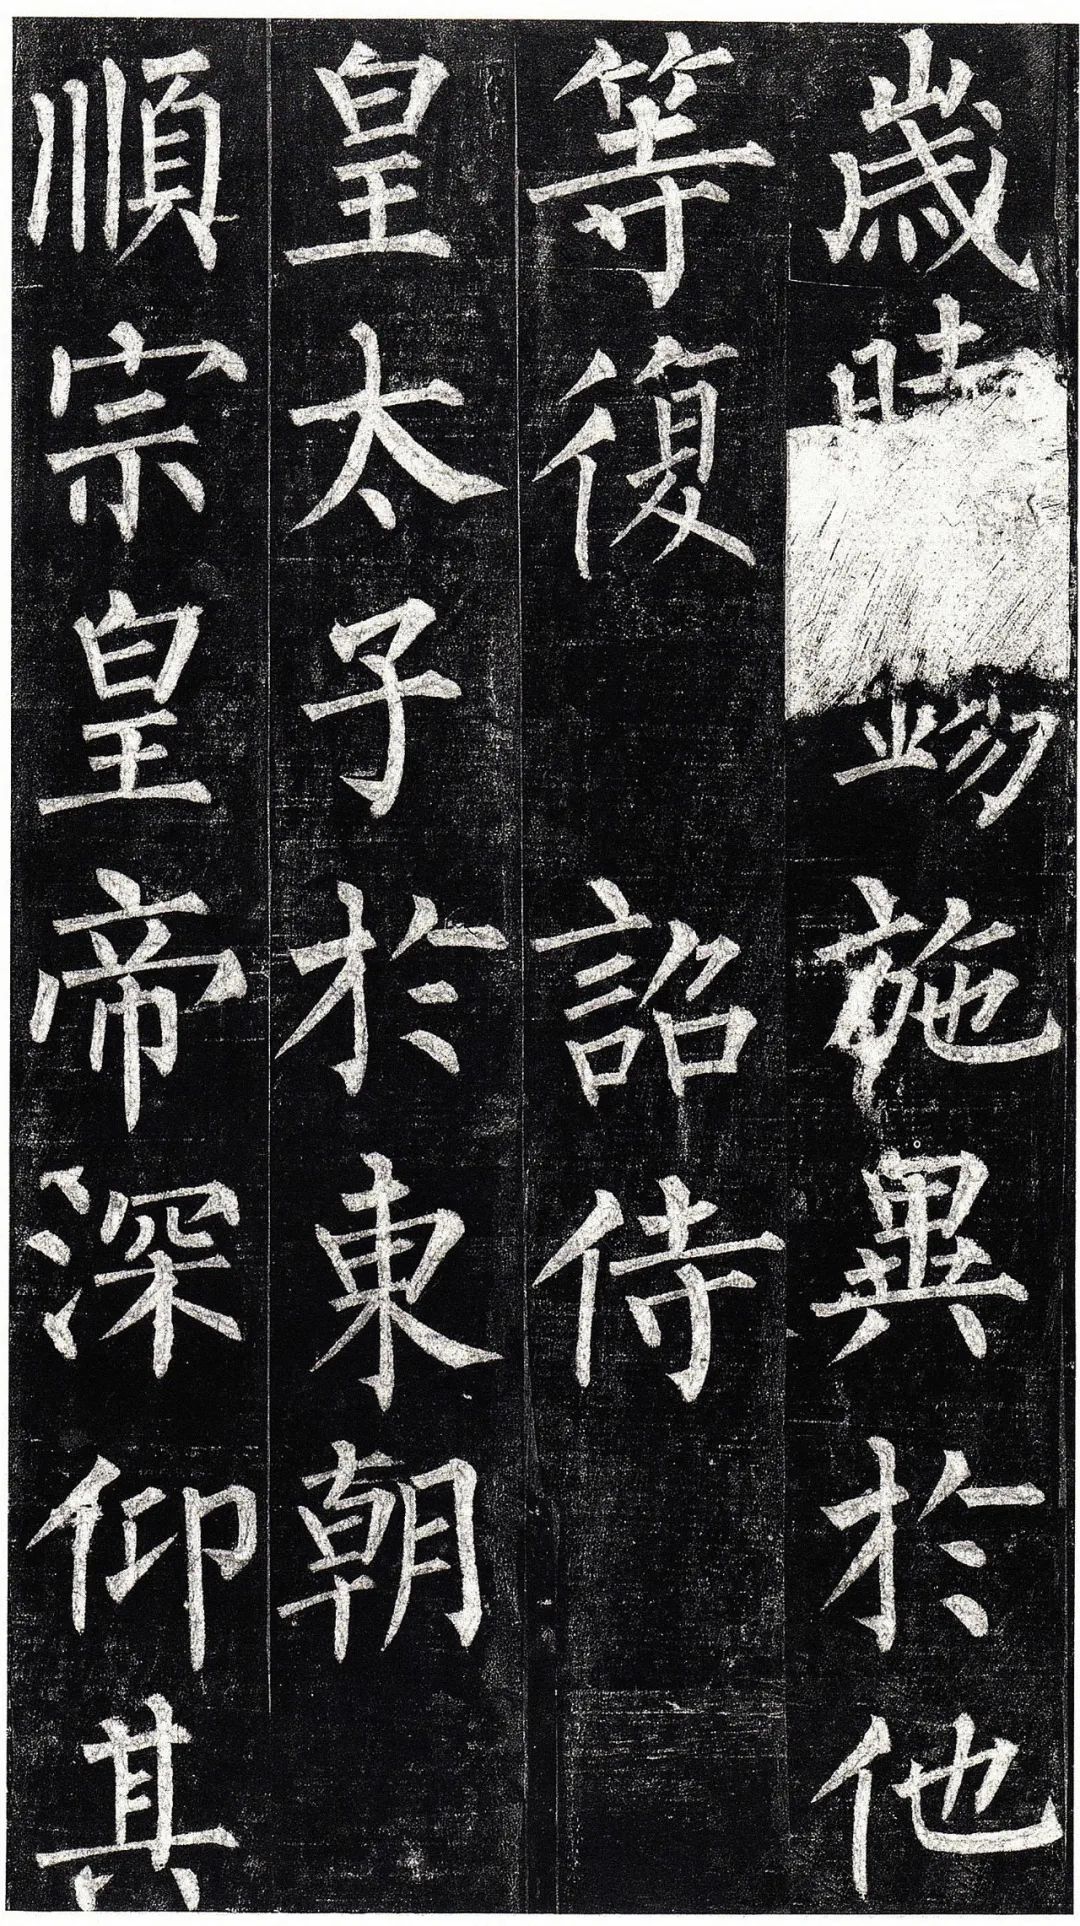 歲時錫施異於他
等復詔侍
皇太子於東朝
順宗皇帝深仰其